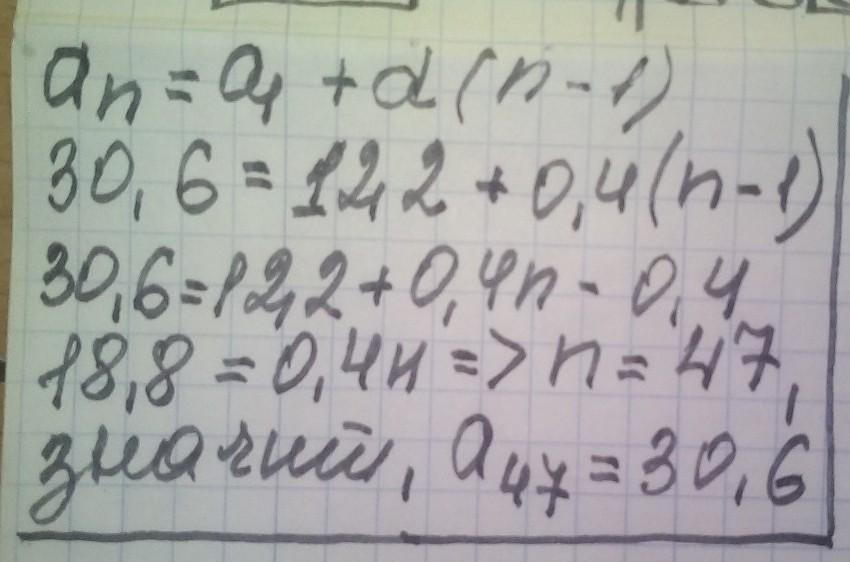 aₙ = a₁ + d(n-1)
30,6 = 12,2 + 0,4(n-1)
30,6=12,2+0,4n - 0,4
18,8 = 0,4n => n = 47,
значит, a₄₇ = 30,6